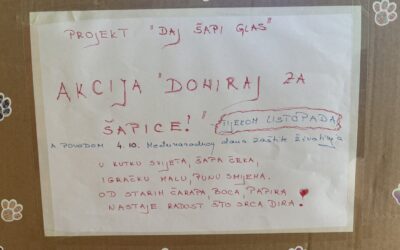 PROJEKT "DAJ ŠAPI GLAS"
AKCIJA "DONIRAJ ZA
ŠAPICE!" - TIJEKOM LISTOPADA
A POVODOM 4.10. Međunarodnog dana zaštite životinja
U KUTKU SVIJETA, ŠAPA ČEKA,
IGRAČKU MALU, PUNU SMIJEHA.
OD STARIH ČARAPA, BOCA, PAPIRA
NASTAJE RADOST ŠTO SRCA DIRA!